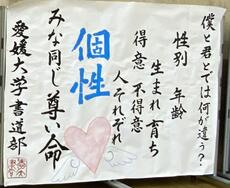 僕と君とでは何が違う?
性別 年齢
生まれ育ち
得意 不得意
人それぞれ
個性
みな同じ尊い命
愛媛大学書道部